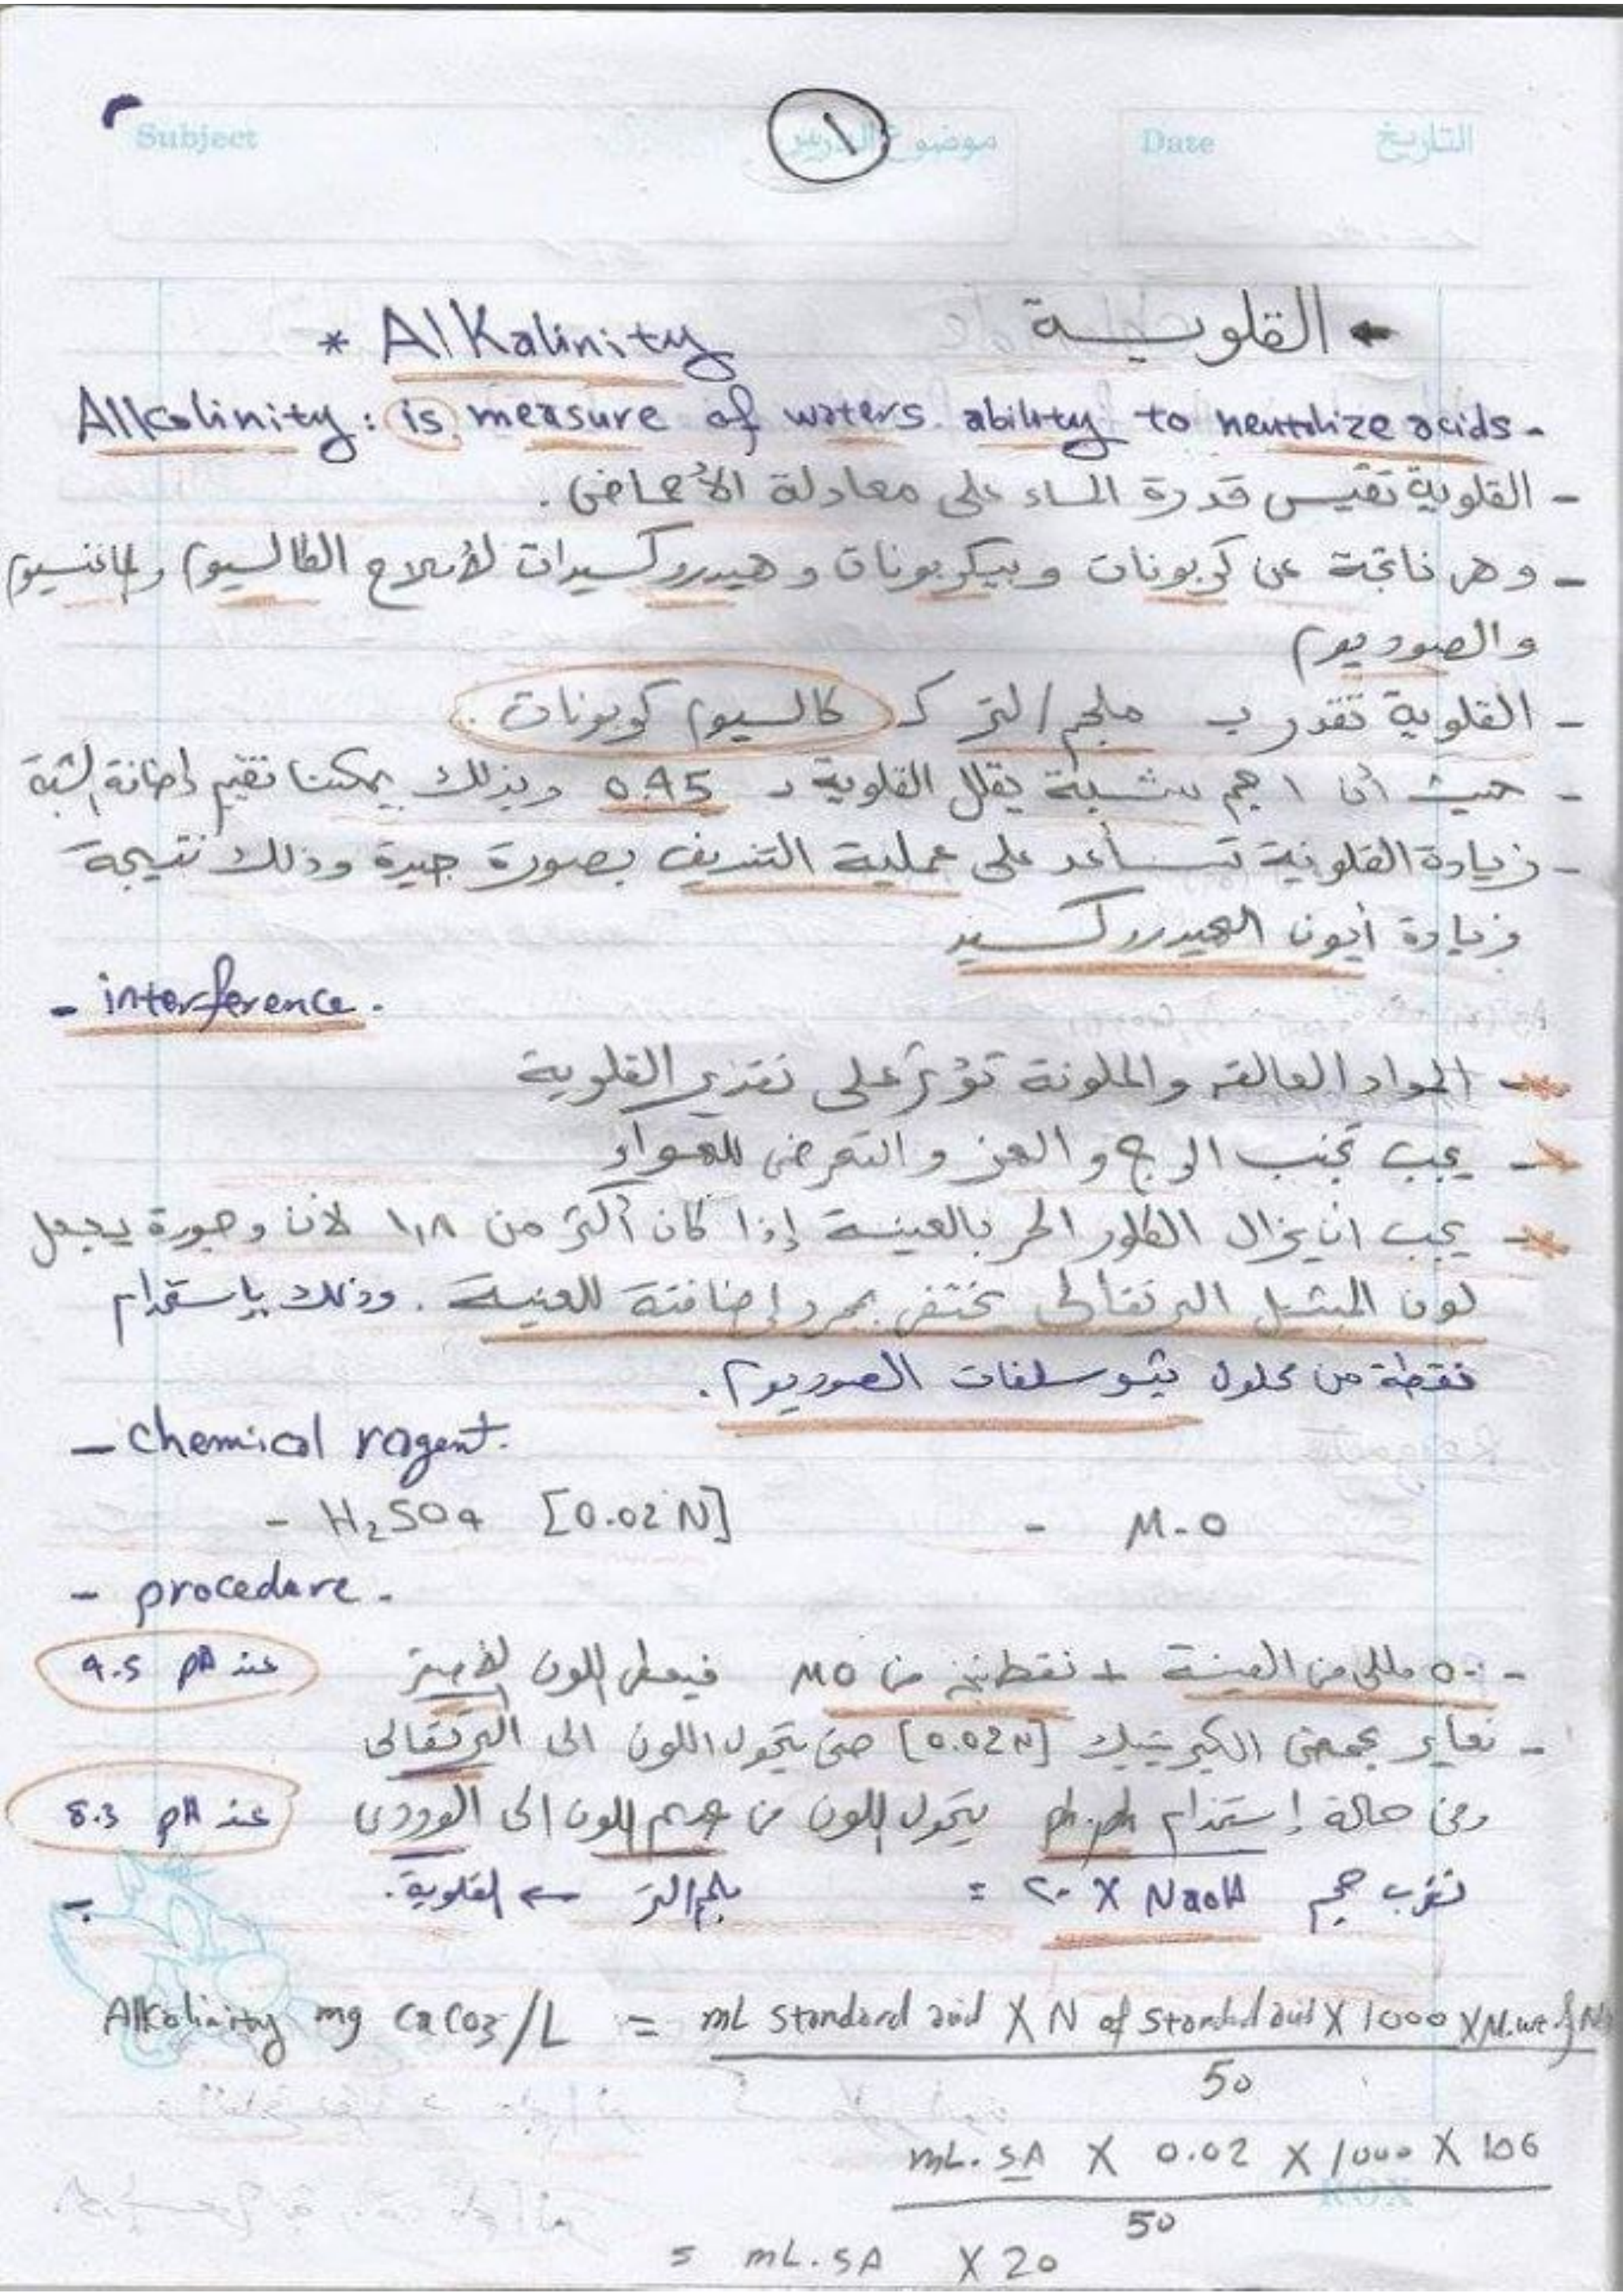 Subject موضوع الدرس Date التاريخ
١
القلويــة
* Alkalinity
Alkalinity: is measure of waters ability to neutrlize acids -
- القلوية تقيس قدرة الماء على معادلة الأحماض .
- وهى ناتجة عن كربونات وبيكربونات وهيدروكسيدات لأملاح الكالسيوم والماغنسيوم
والصوديوم
- القلوية تقدر بـ ملجم / لتر كـ كالسيوم كربونات .
- حيث أن ١ جم شبة يقلل القلوية د 0.45 وبذلك يمكننا تقيم إضافة الشبة
- زيادة القلوية تساعد على عملية التنديف بصورة جيدة وذلك نتيجة
زيادة أيون الهيدروكسيد
- interference.
- المواد العالقه والملونة تؤثر على تقدير القلوية
- يجب تجنب الرج و الهز و التعرض للهواء
- يجب ان يزال الكلور الحر بالعينة إذا كان أكثر من ١,٨ لأن وجودة يجعل
لون الميثيل البرتقالى يختفى بمجرد إضافتة للعينة . وذلك بإستخدام
نقطة من محلول ثيوسلفات الصوديوم .
- chemical ragent.
- H2SO4 [0.02 N] - M-O
- procedure -
- ٥٠ مللى من العينة + نقطتين من MO فيعطى اللون الأصفر عند pH 4.5
- نعاير بحمض الكبريتيك [0.02N] حتى يتحول اللون الى البرتقالى
وفى حالة إستخدام ph.ph يتحول اللون من عديم اللون الى الوردى عند pH 8.3
نضرب حجم NaOH X ٢٠ = ملجم/لتر ← القلوية .
Alkalinity mg CaCO3/L = mL Standard acid X N of Standard acid X 1000 X M.wt. of
50
mL. SA X 0.02 X 1000 X 106
50
= mL. SA X 20